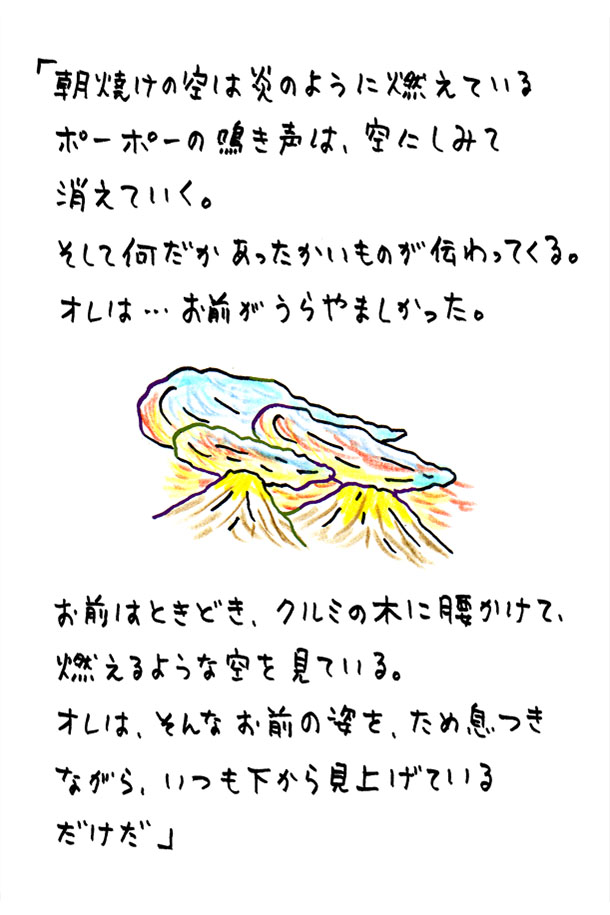 「朝焼けの空は炎のように燃えている
ポーポーの鳴き声は、空にしみて
消えていく。
そして何だかあったかいものが伝わってくる。
オレは…お前がうらやましかった。
お前はときどき、クルミの木に腰かけて、
燃えるような空を見ている。
オレは、そんなお前の姿を、ため息つき
ながら、いつも下から見上げている
だけだ」